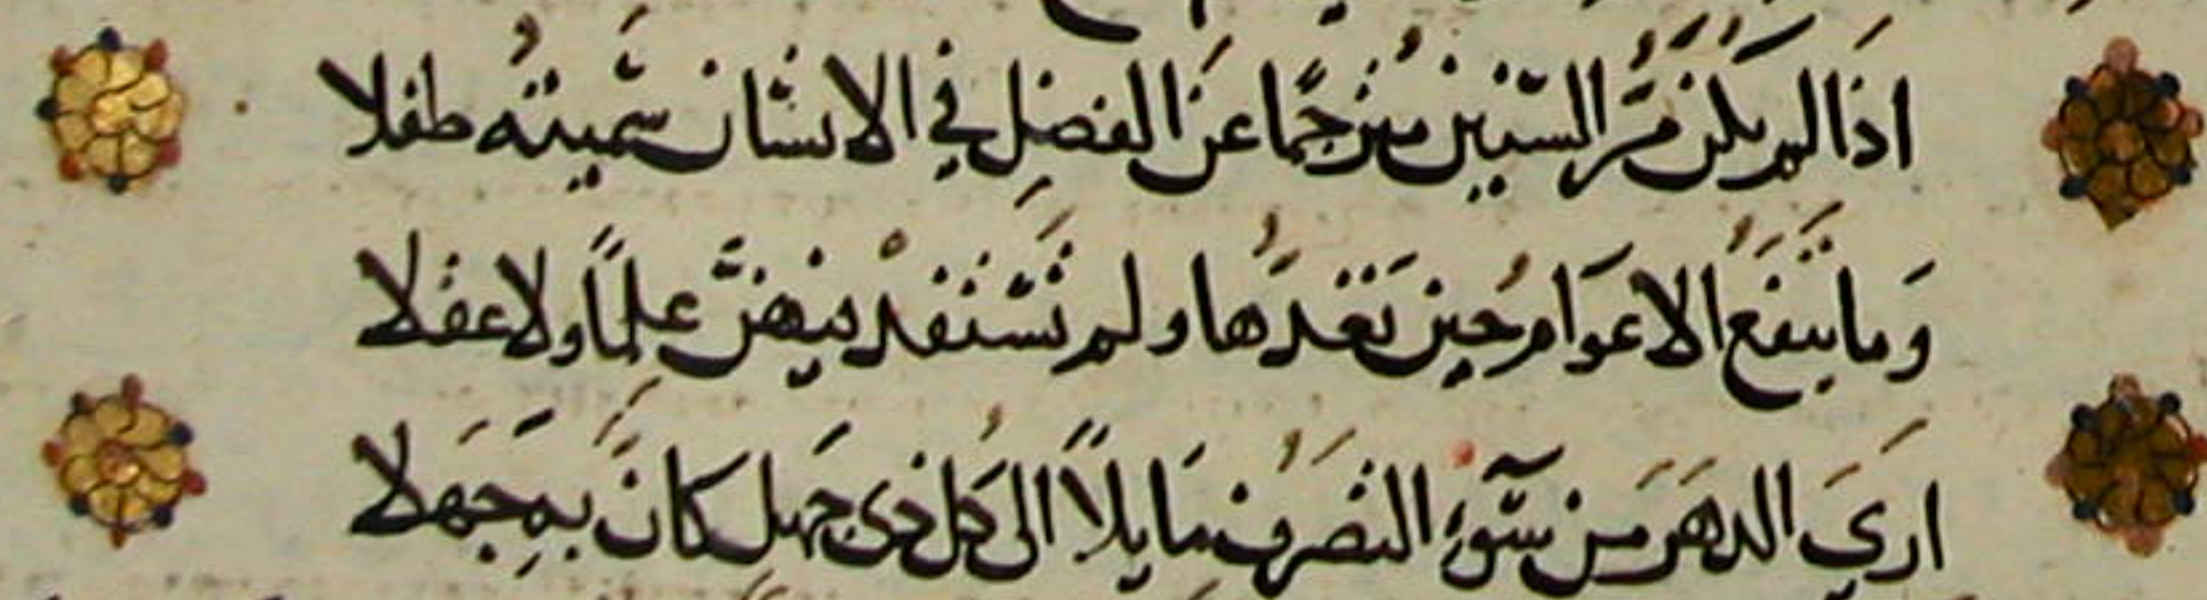 اذا لم يكن مَرُّ السّنين مُترجمًا عن الفضلِ في الانسان سمّيتُه طفلا
وَما يَنفَعُ الاعوَامُ حِينَ تَعُدُّها ولم تَسْتَفِدْ فيهنَّ عِلمًا ولا عقلا
اَرَي الدهرَ مِن سُوءِ التصَرُّفِ مَايلًا الى كُل ذى جهل كانَ بهِ جَهلا